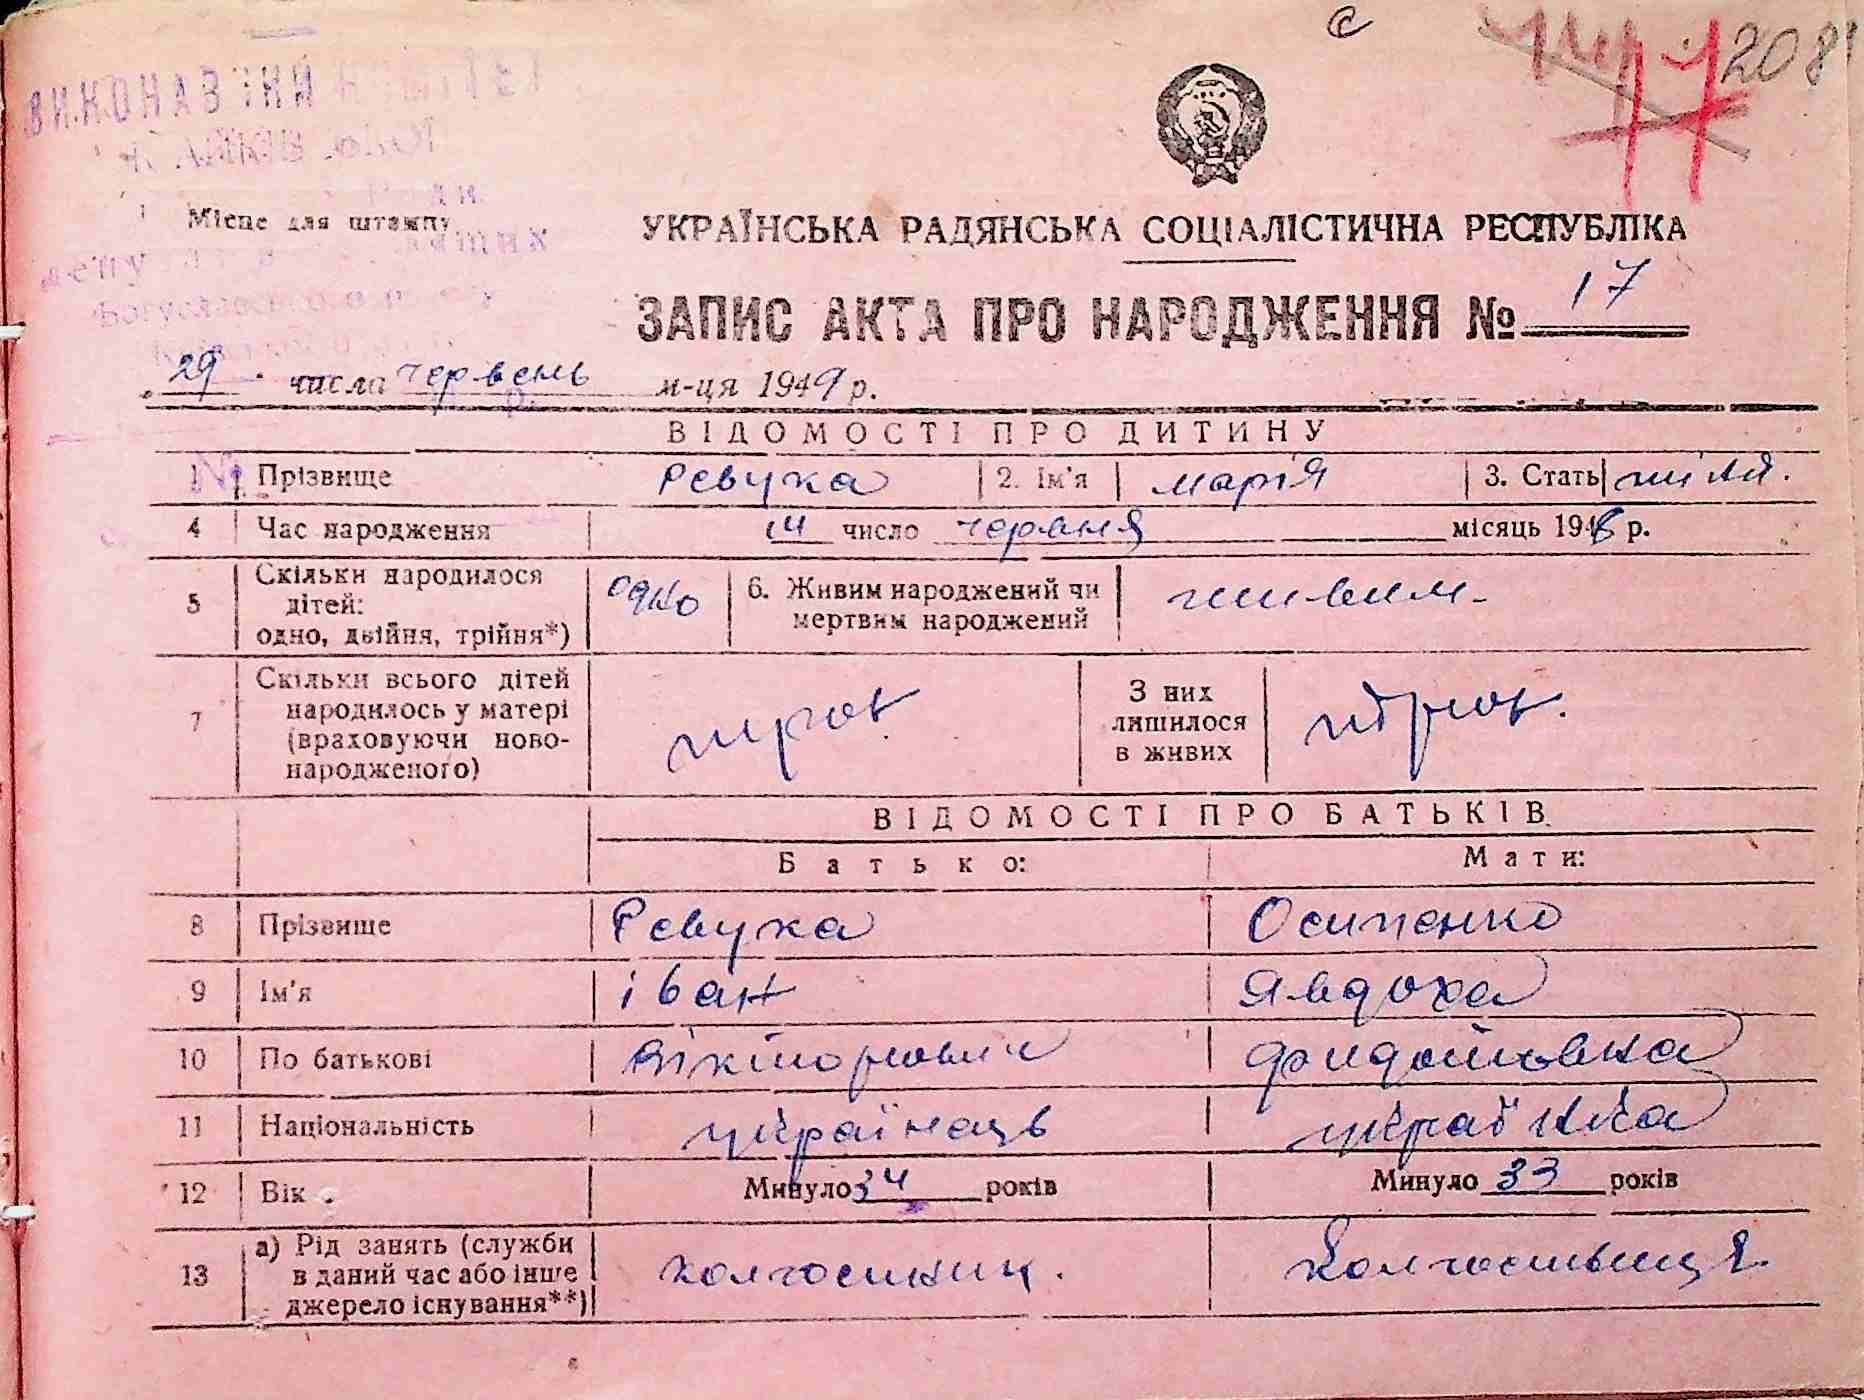 с
208
ВИКОНАВЧИЙ КОМІТЕТ
Місце для штампу
Богуславського р-ну
УКРАЇНСЬКА РАДЯНСЬКА СОЦІАЛІСТИЧНА РЕСПУБЛІКА
ЗАПИС АКТА ПРО НАРОДЖЕННЯ № 17
29 числа червень м-ця 1949 р.
ВІДОМОСТІ ПРО ДИТИНУ
1 Прізвище Ревука 2. Ім'я Марія 3. Стать жіноч.
4 Час народження 14 число червня місяць 1948 р.
5 Скільки народилося дітей: одно, двійня, трійня*) одно 6. Живим народжений чи мертвим народжений живим
7 Скільки всього дітей народилось у матері (враховуючи новонародженого) З них лишилося в живих
ВІДОМОСТІ ПРО БАТЬКІВ
Батько: Мати:
8 Прізвище Ревука Осипенко
9 Ім'я іван Явдоха
10 По батькові Вікторович Федотовна
11 Національність українець українка
12 Вік Минуло 34 років Минуло 33 років
13 а) Рід занять (служби в даний час або інше джерело існування**) колгоспник. колгоспниця.